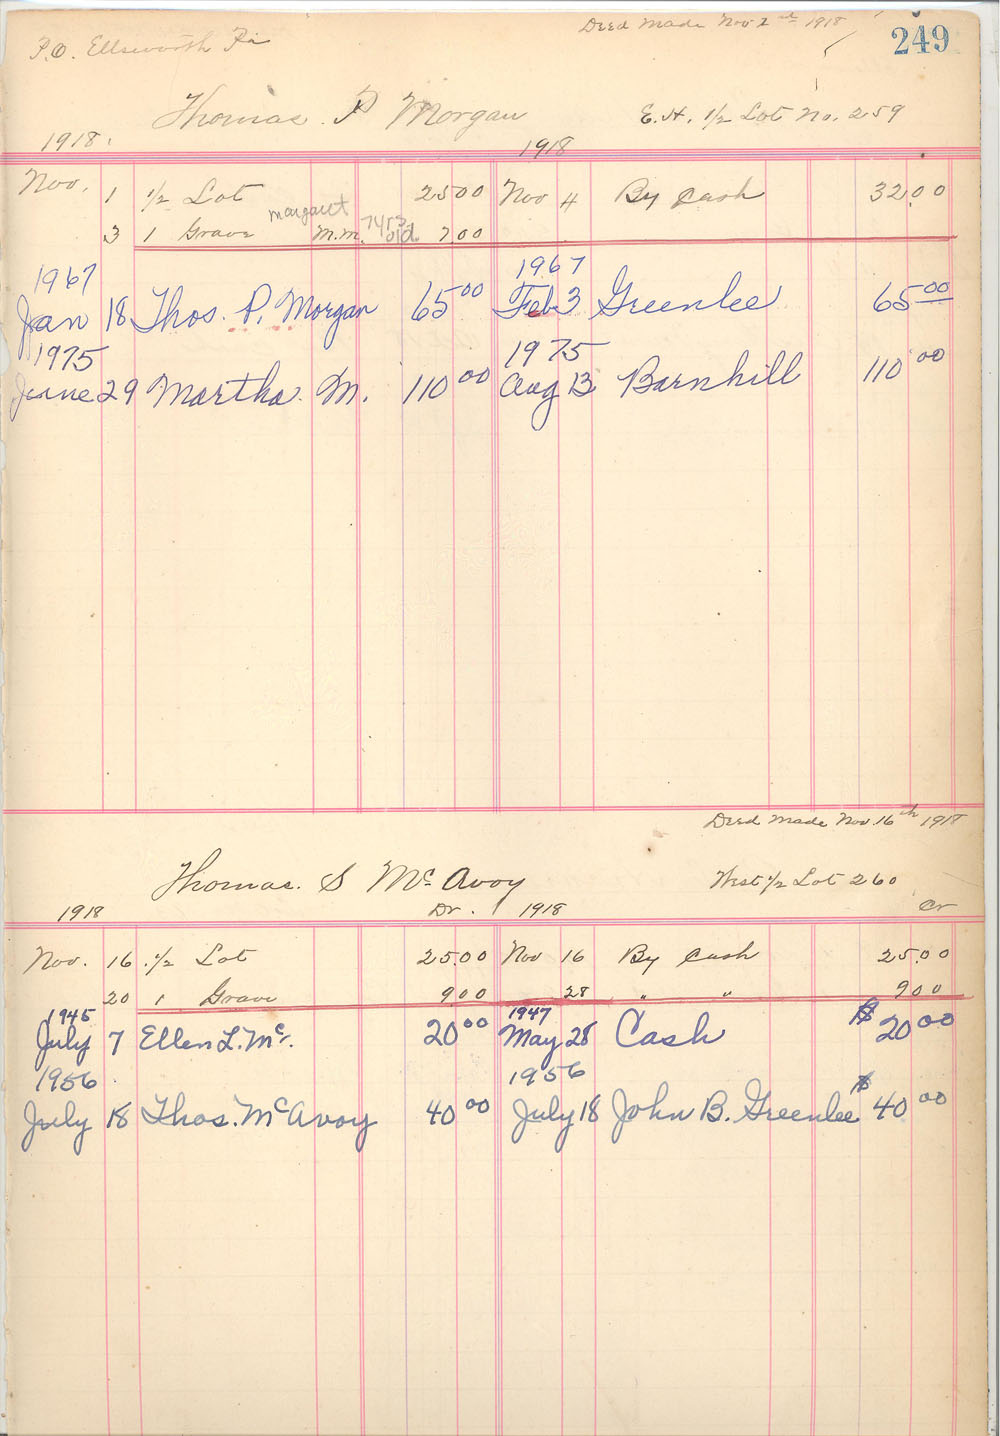 Deed Made Nov 2nd 1918
249
P.O. Ellsworth Pa
Thomas. P Morgan E.H. 1/2 Lot No. 259
1918. 1918
Nov. 1 1/2 Lot 25 00 Nov 4 By Cash 32.00
margaret
3 1 Grave M.M. 74 yrs old 7.00
1967 1967
Jan 18 Thos. P. Morgan 65 00 Feb 3 Greenlee 65 00
1975 1975
June 29 Martha M. 110 00 Aug 13 Barnhill 110 00
Deed Made Nov. 16th 1918
Thomas. S Mc Avoy West 1/2 Lot 260
1918 Dr. 1918 Cr
Nov. 16 1/2 Lot 25.00 Nov 16 By Cash 25.00
20 1 Grave 9.00 28 " " 9.00
1945 1947
July 7 Ellen L. Mc. 20 00 May 28 Cash $ 20 00
1956 1956
July 18 Thos. McAvoy 40 00 July 18 John B. Greenlee $ 40 00